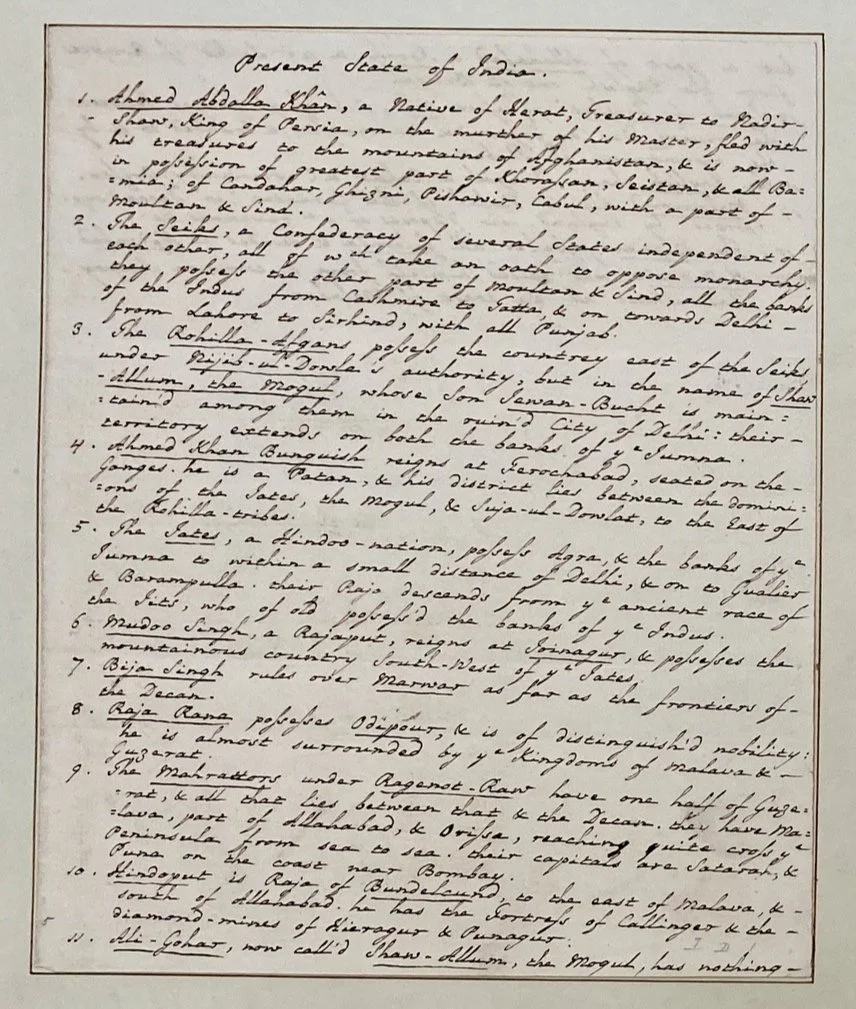 Present State of India.
1. Ahmed Abdalla Khân, a Native of Herat, Treasurer to Nadir-
-Shaw, King of Persia, on the murther of his Master, fled with
his treasures to the mountains of Afghanistan, & is now -
in possession of greatest part of Khorassan, Seistan, & all Ba=
=mia; of Candahar, Ghizni, Pishawir, Cabul, with a part of -
Moultan & Sind.
2. The Seiks, a Confederacy of several States independent of -
each other, all of wch take an oath to oppose monarchy.
they possess the other part of Moultan & Sind, all the banks
of the Indus from Cashmire to Tatta, & on towards Delhi -
from Lahore to Sirhind, with all Punjab.
3. The Rohilla-Afgans possess the countrey east of the Seiks
under Nijib-ul-Dowle's authority, but in the name of Shaw
-Allum, the Mogul, whose Son Jewan-Bucht is main=
=tain'd among them in the ruin'd City of Delhi: their -
territory extends on both the banks of ye Jumna.
4. Ahmed Khan Bunguish reigns at Ferochabad, seated on the -
Ganges. he is a Patan, & his district lies between the domini=
=ons of the Jates, the Mogul, & Suja-ul-Dowlat, to the East of
the Rohilla-tribes.
5. The Jates, a Hindoo-nation, possess Agra, & the banks of ye
Jumna to within a small distance of Delhi, & on to Gualier
& Barampulla. their Raja descends from ye ancient race of
the Jits, who of old possess'd the banks of ye Indus.
6. Mudoo Singh, a Rajaput, reigns at Joinagur, & possesses the
mountainous country South-West of ye Jates.
7. Bija Singh rules over Marwar as far as the frontiers of -
the Decan.
8. Raja Rana possesses Odipour, & is of distinguish'd nobility:
he is almost surrounded by ye Kingdoms of Malava & -
Guzerat.
9. The Mahrattors under Ragenot-Raw have one half of Guze=
=rat, & all that lies between that & the Decan. they have Ma=
=lava, part of Allahabad, & Orissa, reaching quite cross ye
Peninsula from sea to sea. their capitals are Satarah, &
Puna on the coast near Bombay.
10. Hindoput is Raja of Bundelcund, to the east of Malava, & -
south of Allahabad. he has the Fortress of Callinger & the -
diamond-mines of Hieragur & Punagur.
11. Ali-Gohar, now call'd Shaw-Allum, the Mogul, has nothing -